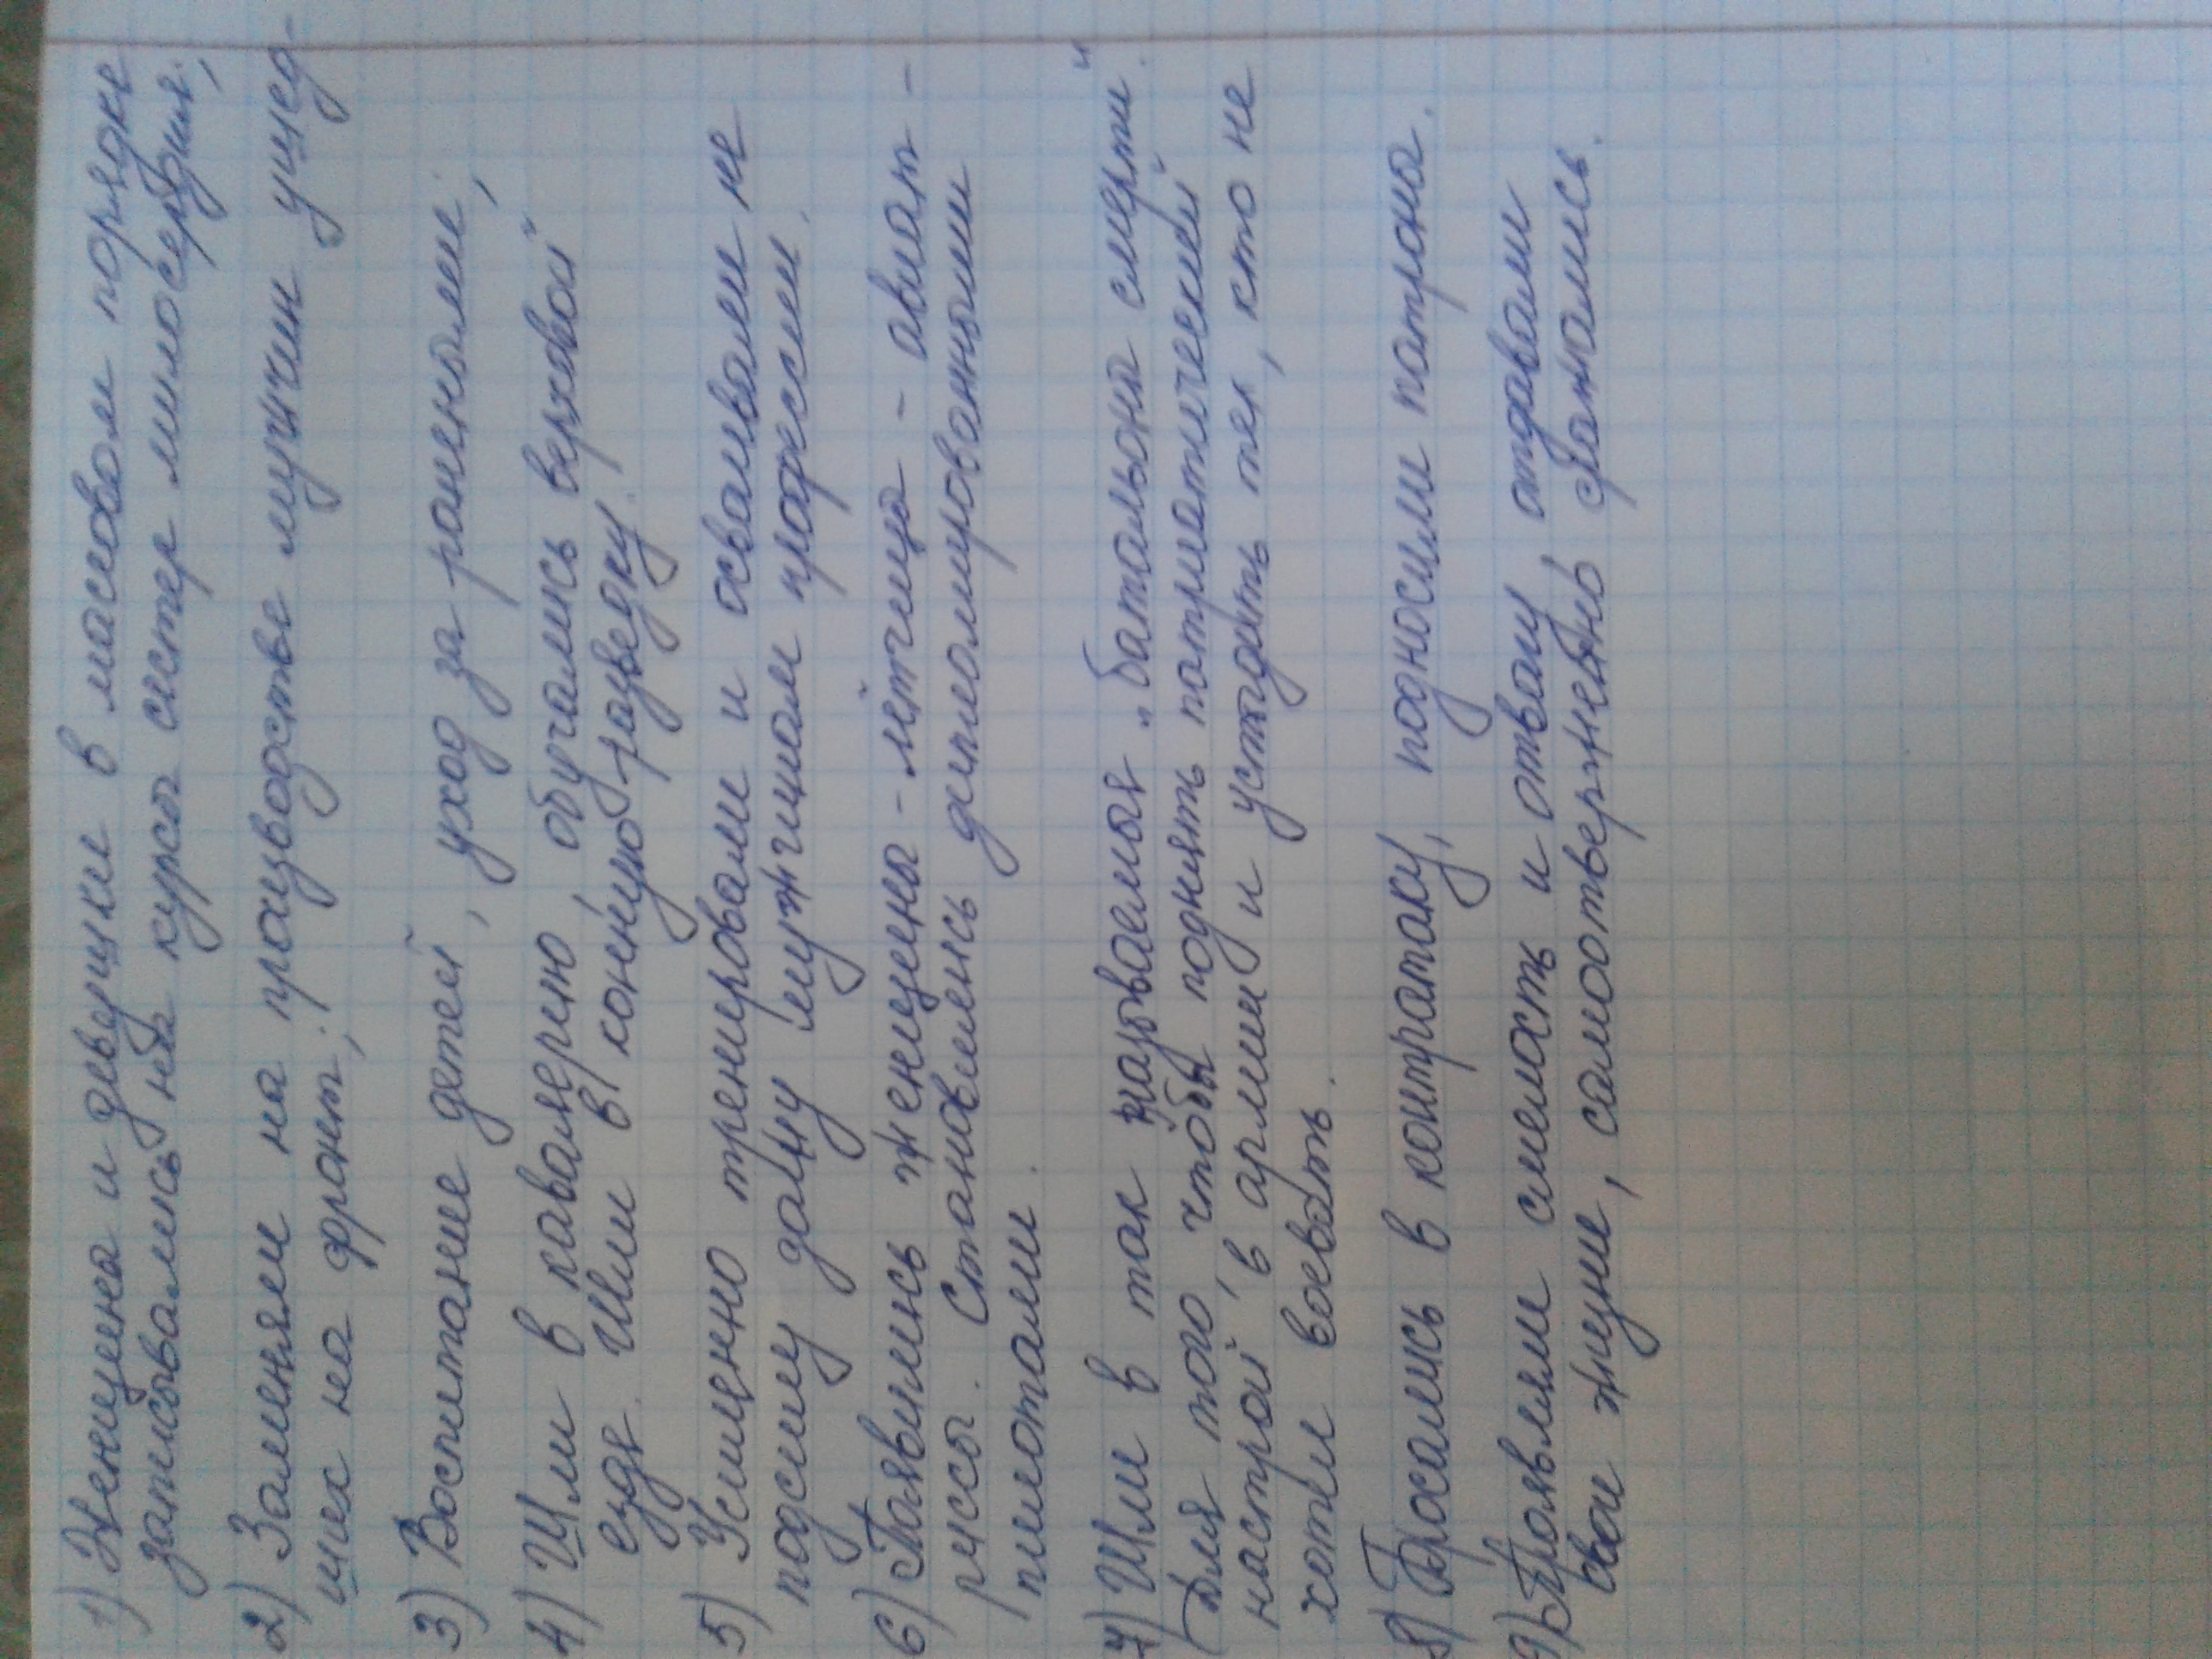 1) Женщина и девушки в масовом порядке
записовались на курсы систер милосердия;
2) Заменяли на произвостве мужчин ушед-
ших на фронт;
3) Воспитание детей, уход за ранеными;
4) Шли в кавалерию, обучались верховой
езде. Шли в конную разведку.
5) Усиленно тренировали и осваивали не
подсилу даму мужчинам професии.
6) Появились женщены - лётчицы - авиат -
риссы. Становились дипломированными
пилотами.
7) Шли в так назоваемыя „батальоны смерти".
(Для того, чтобы поднять патриотический
настрой в армии и устыдить тех, кто не
хотел воевать.
8) Бросались в контратаку, подносили патроны.
9) Проявляли смелость и отвагу, отдавали
свои жизни, самоотверженно сражались.